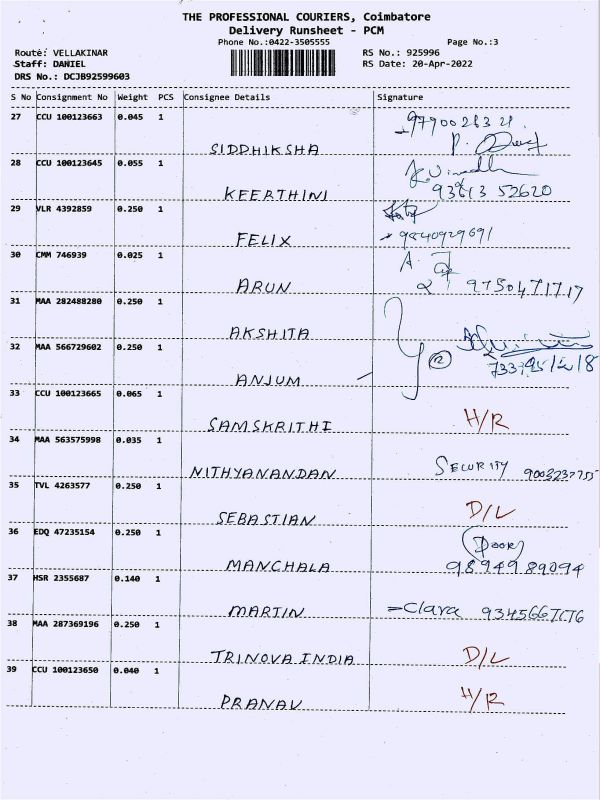 THE PROFESSIONAL COURIERS, Coimbatore
Delivery Runsheet - PCM
Phone No.:0422-3505555
Page No.:3
Route: VELLAKINAR
RS No.: 925996
Staff: DANIEL
RS Date: 20-Apr-2022
DRS No.: DCJB92599603
S No Consignment No Weight PCS Consignee Details Signature
27 CCU 100123663 0.045 1
SIDDHIKSHA
28 CCU 100123645 0.055 1
KEERTHINI
29 VLR 4392859 0.250 1
FELIX 9840929691
30 CMM 746939 0.025 1
ARUN 9750471717
31 MAA 282488280 0.250 1
AKSHITA
32 MAA 566729602 0.250 1
ANJUM
33 CCU 100123665 0.065 1
SAMSKRITHI H/R
34 MAA 563575998 0.035 1
NITHYANANDAN SECURITY
35 TVL 4263577 0.250 1
SEBASTIAN D/L
36 EDQ 47235154 0.250 1
Door
MANCHALA 9894989094
37 HSR 2355687 0.140 1
MARTIN =Clara
38 MAA 287369196 0.250 1
TRINOVA INDIA D/L
39 CCU 100123650 0.040 1
PRANAV H/R